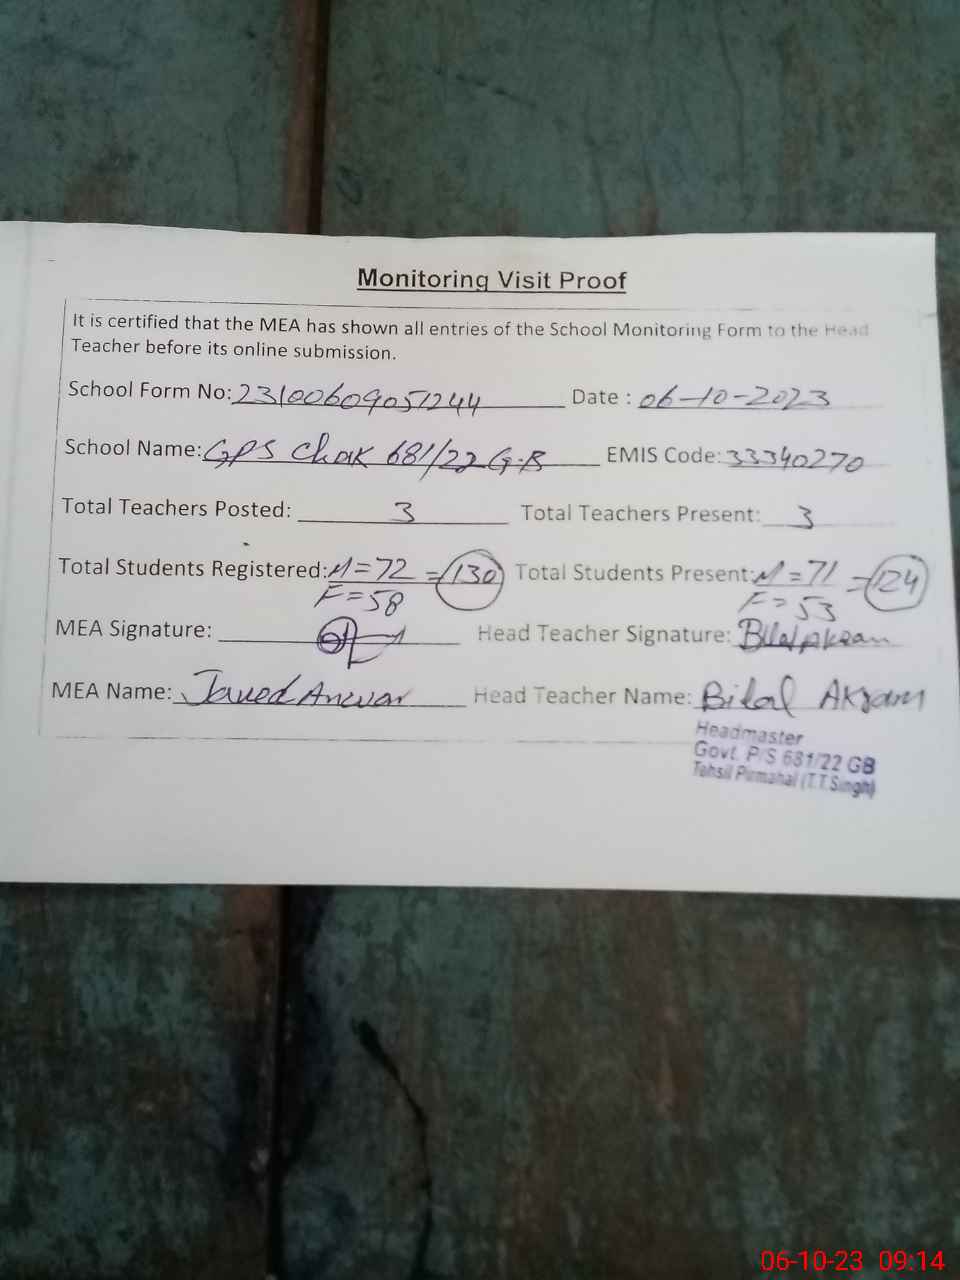 Monitoring Visit Proof
It is certified that the MEA has shown all entries of the School Monitoring Form to the Head
Teacher before its online submission.
School Form No: 23100609051244 Date : 06-10-2023
School Name: GPS Chak 681/22 G.B EMIS Code: 33340270
Total Teachers Posted: 3 Total Teachers Present: 3
Total Students Registered: M=72 =130 Total Students Present: M=71 =124
F=58 F=53
MEA Signature: Head Teacher Signature: Bilal Akram
MEA Name: Javed Anwar Head Teacher Name: Bilal Akram
Headmaster
Govt. P/S 681/22 GB
Tehsil Pirmahal (T.T.Singh)
06-10-23 09:14